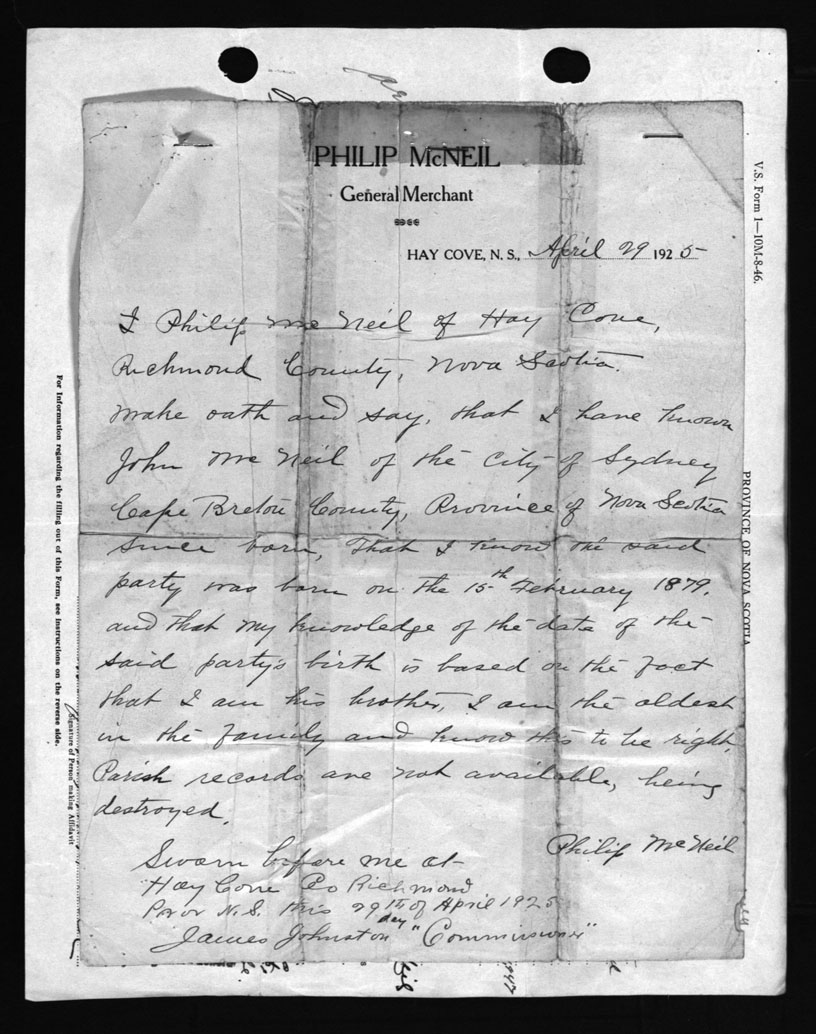 PHILIP McNEIL
General Merchant
HAY COVE, N. S., April 29 1925
I Philip McNeil of Hay Cove,
Richmond County, Nova Scotia.
make oath and say, that I have known
John McNeil of the City of Sydney
Cape Breton County, Province of Nova Scotia
since born, That I know the said
party was born on the 15th February 1879.
and that my knowledge of the date of the
said party's birth is based on the fact
that I am his brother, I am the oldest
in the family and know this to be right.
Parish records are not available, being
destroyed.
Philip McNeil
Sworn before me at
Hay Cove Co Richmond
Prov N.S. this 29th day of April 1925
James Johnston "Commissioner"
V.S. Form 1—10M-8-46.
PROVINCE OF NOVA SCOTIA
For Information regarding the filling out of this Form, see Instructions on the reverse side.
(Signature of Person making Affidavit